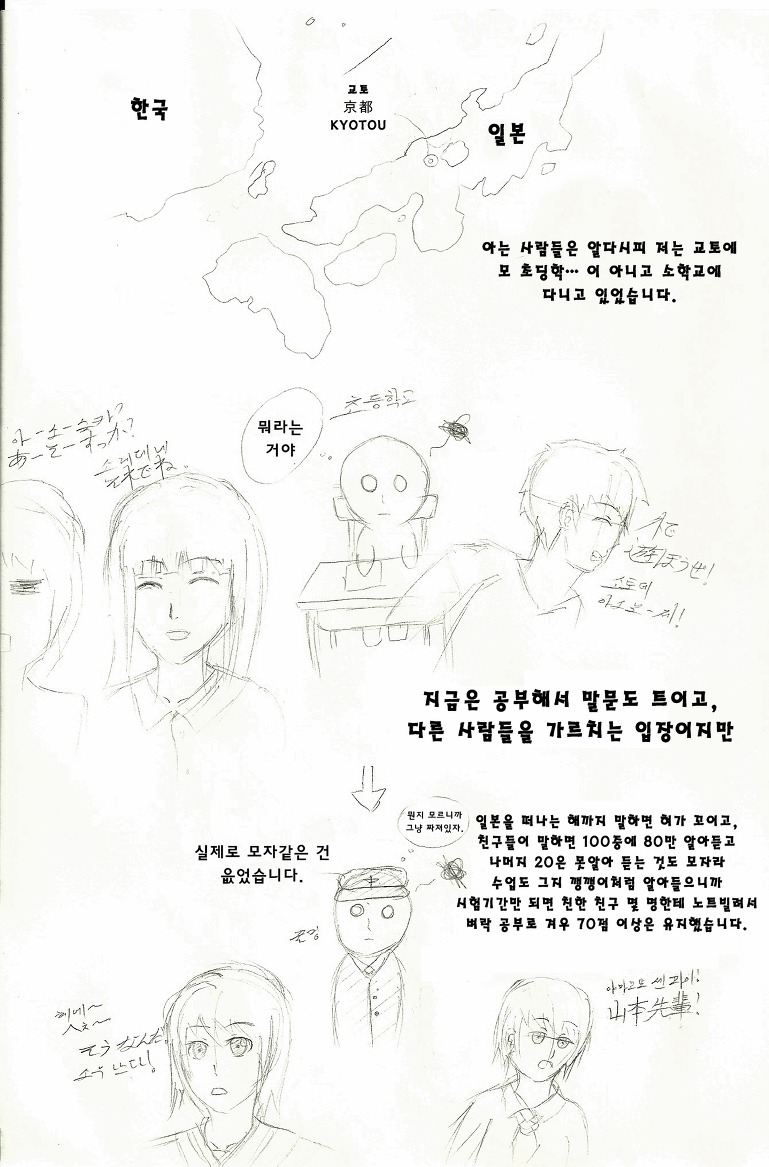 한국
교토
京都
KYOTOU
일본
아는 사람들은 알다시피 저는 교토에
모 초딩학… 이 아니고 소학교에
다니고 있었습니다.
초등학교
뭐라는
거야
소레데네
それでね。
外で
遊ぼうぜ!
소토데
아소보-제!
지금은 공부해서 말문도 트이고,
다른 사람들을 가르치는 입장이지만
뭔지 모르니까
그냥 짜져있자.
일본을 떠나는 해까지 말하면 혀가 꼬이고,
친구들이 말하면 100중에 80만 알아듣고
나머지 20은 못알아 듣는 것도 모자라
수업도 그지 깽깽이처럼 알아들으니까
시험기간만 되면 친한 친구 몇 명한테 노트빌려서
벼락 공부로 겨우 70점 이상은 유지했습니다.
실제로 모자같은 건
읎었습니다.
헤에~
へえ~
そうなんだ!
소우난다!
야마모토 센파이!
山本先輩!